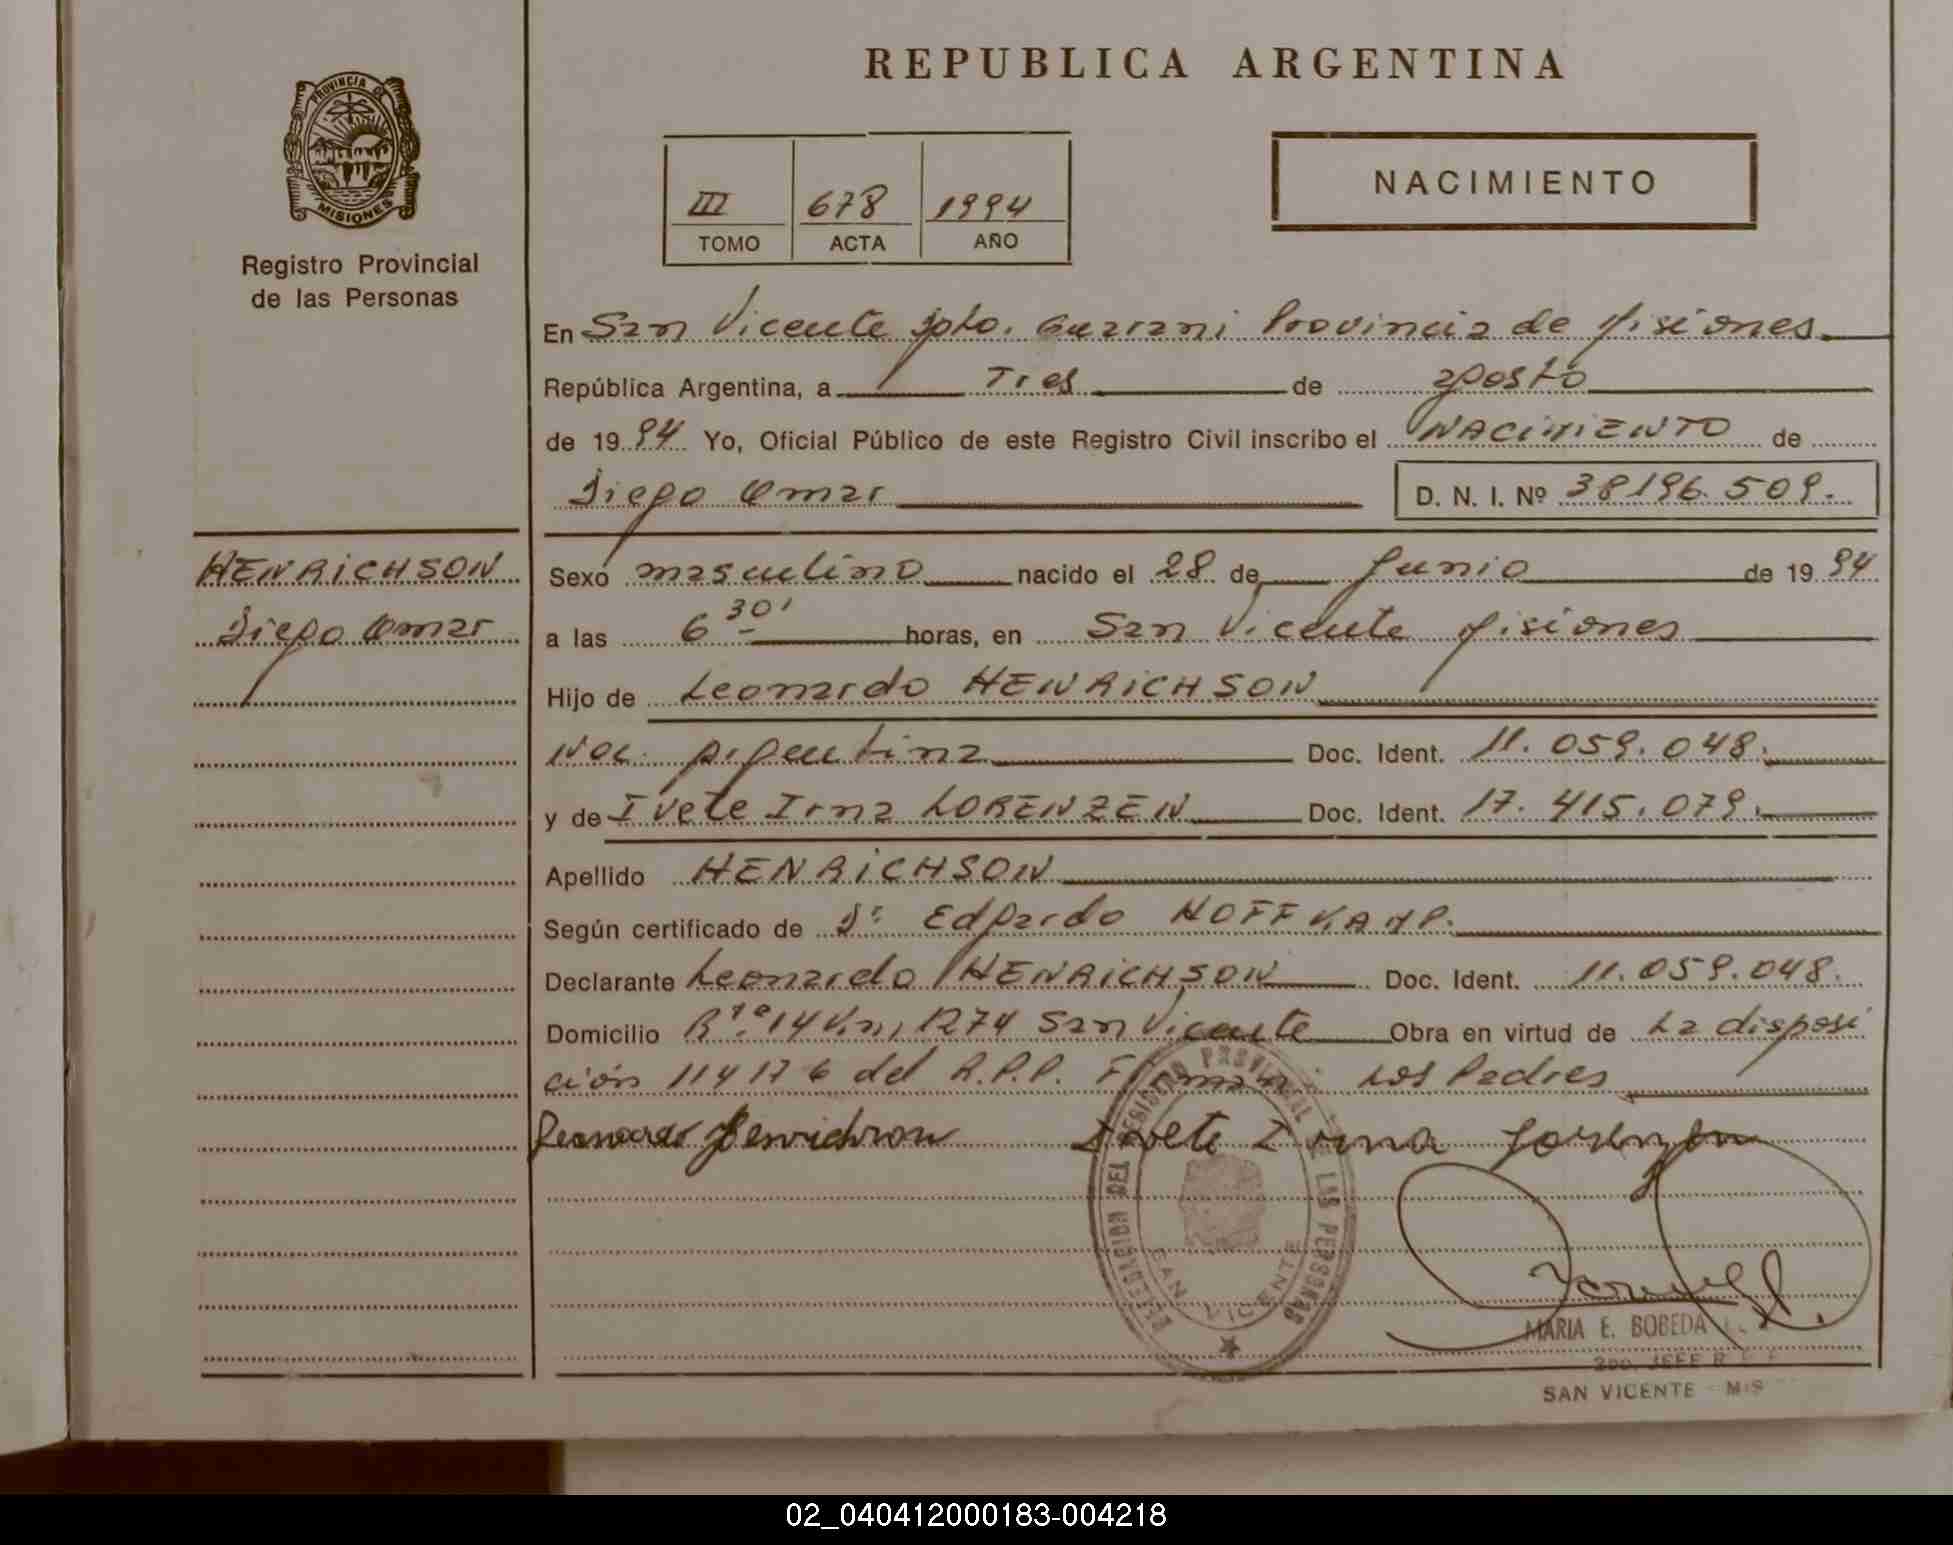 REPUBLICA ARGENTINA
PROVINCIA DE
MISIONES
Registro Provincial
de las Personas
III 678 1994
TOMO ACTA AÑO
NACIMIENTO
En San Vicente Dpto. Guarani Provincia de Misiones
República Argentina, a Tres de agosto
de 1994 Yo, Oficial Público de este Registro Civil inscribo el NACIMIENTO de
Diego Omar D. N. I. Nº 38196.509.
HENRICHSON
Diego Omar
Sexo masculino nacido el 28 de Junio de 1994
a las 6 30' horas, en San Vicente Misiones
Hijo de Leonardo HENRICHSON
Nac. Argentina Doc. Ident. 11.059.048.
y de Ivete Irma LORENZEN Doc. Ident. 17.415.079.
Apellido HENRICHSON
Según certificado de Dr. Edgardo HOFFKAMP.
Declarante Leonardo HENRICHSON Doc. Ident. 11.059.048.
Domicilio Rta. 14 Km, 1274 San Vicente Obra en virtud de La disposi
ción 114176 del R.P.P. Firman: Los Padres
Leonardo Henrichson Ivete Irma Lorenzen
DELEGACION DEL REGISTRO PROVINCIAL DE LAS PERSONAS
SAN VICENTE
MARIA E. BOBEDA
2do. JEFE R.
SAN VICENTE - MIS
02_040412000183-004218